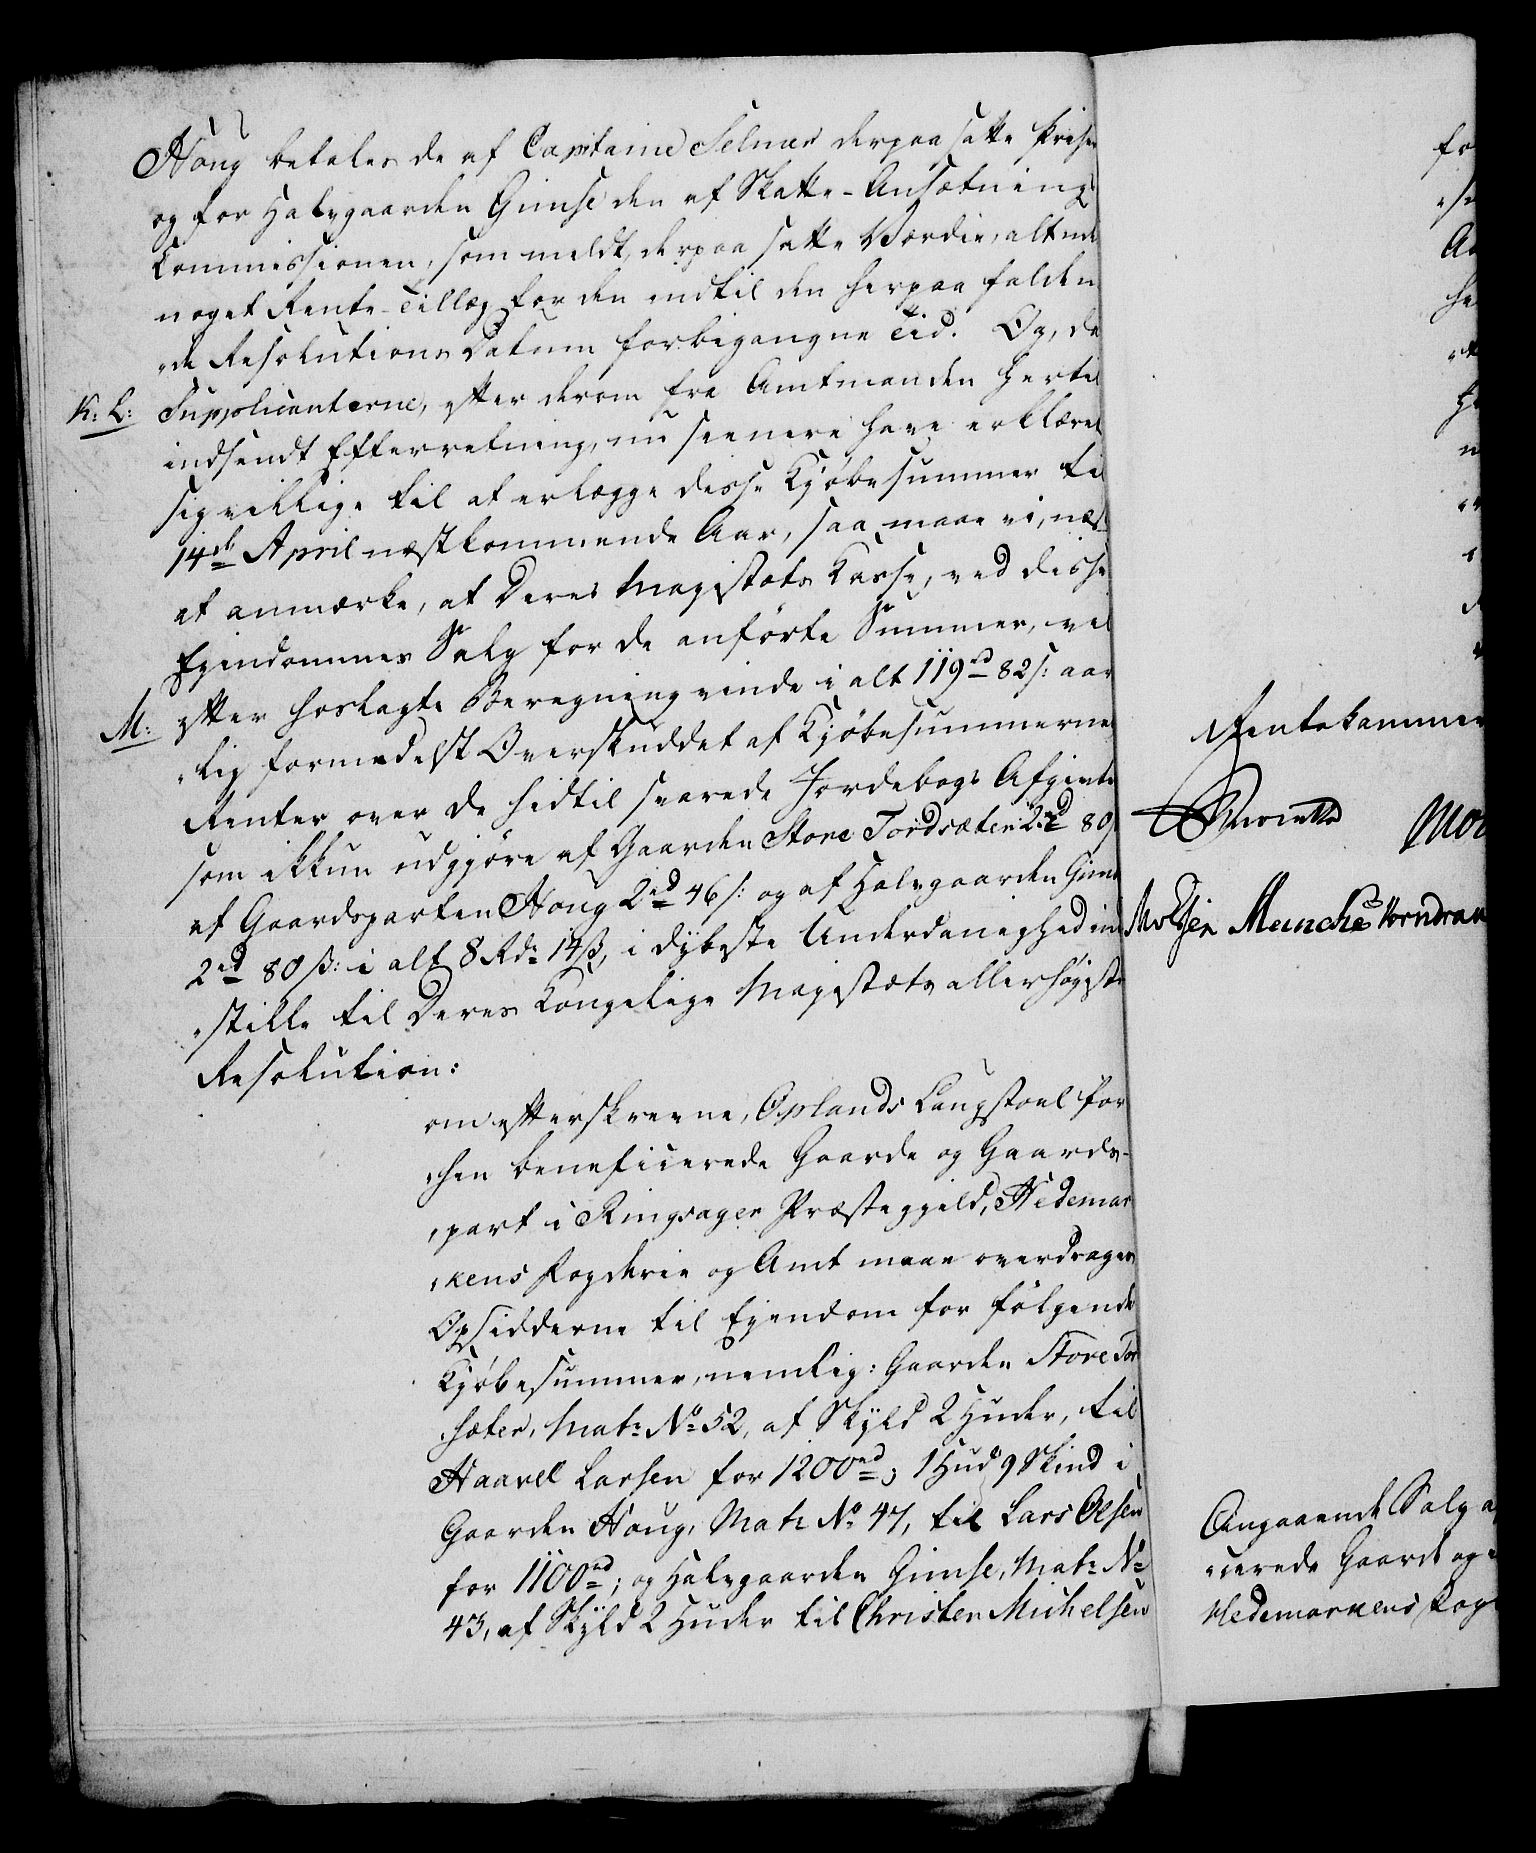 Houg betales de af Capitaine Selmer derpaa satte Priser
og for Halvgaarden Gimse den af Skatte-Ansætnings
Commissionen, som meldt, derpaa satte Værdie, alt med
noget Rente-Tillæg for den indtil den herpaa falden
de Resolutions Datum forbigangne Tid. Og, da
K: L: Supplicanterne, efter derom fra Amtmanden hertil
indsendt Efterretning, nu seenere have erklæret
sig villige til at erlægge disse Kjøbesummer til
14de April næstkommende Aar, saa maae vi, næst
at anmærke, at Deres Majestæts Kasse, ved disse
Ejendommes Salg for de anførte Summer, vil
M: efter hoslagte Beregning vinde i alt 119rd 82s: aar
lig formedelst Overskuddet af Kjøbesummernes
Renter over de hidtil svarede Jordebogs Afgivter
som ikkun udgjøre af Gaarden Store Tordsæter 2rd 80
af Gaardsparten Houg 2rd 46s: og af Halvgaarden Gimse
2rd 80ß: i alt 8 Rdr 14ß, i dybeste Underdanighed ind
stille til Deres Kongelige Majestæts allerhøjeste
Resolution:
om efterskrevne, Oplands Laugstoel for
hen beneficerede Gaarde og Gaards-
part i Ringsager Præstegjeld, Hedemar
kens Fogderie og Amt maae overdrages
Opsidderne til Ejendom for følgende
Kjøbesummer, nemlig: Gaarden Store Tor
sæter, Matr: No 52, af Skyld 2 Huder, til
Haavel Larsen for 1200rd; 1 Hud 9 Skind i
Gaarden Houg, Matr No 47, til Lars Olsen
for 1100rd; og Halvgaarden Gimse, Matr: No
43, af Skyld 2 Huder til Christen Michelsen
Rentekammer
Angaaende Salg a
cerede Gaarde og
Hedemarkens Fog